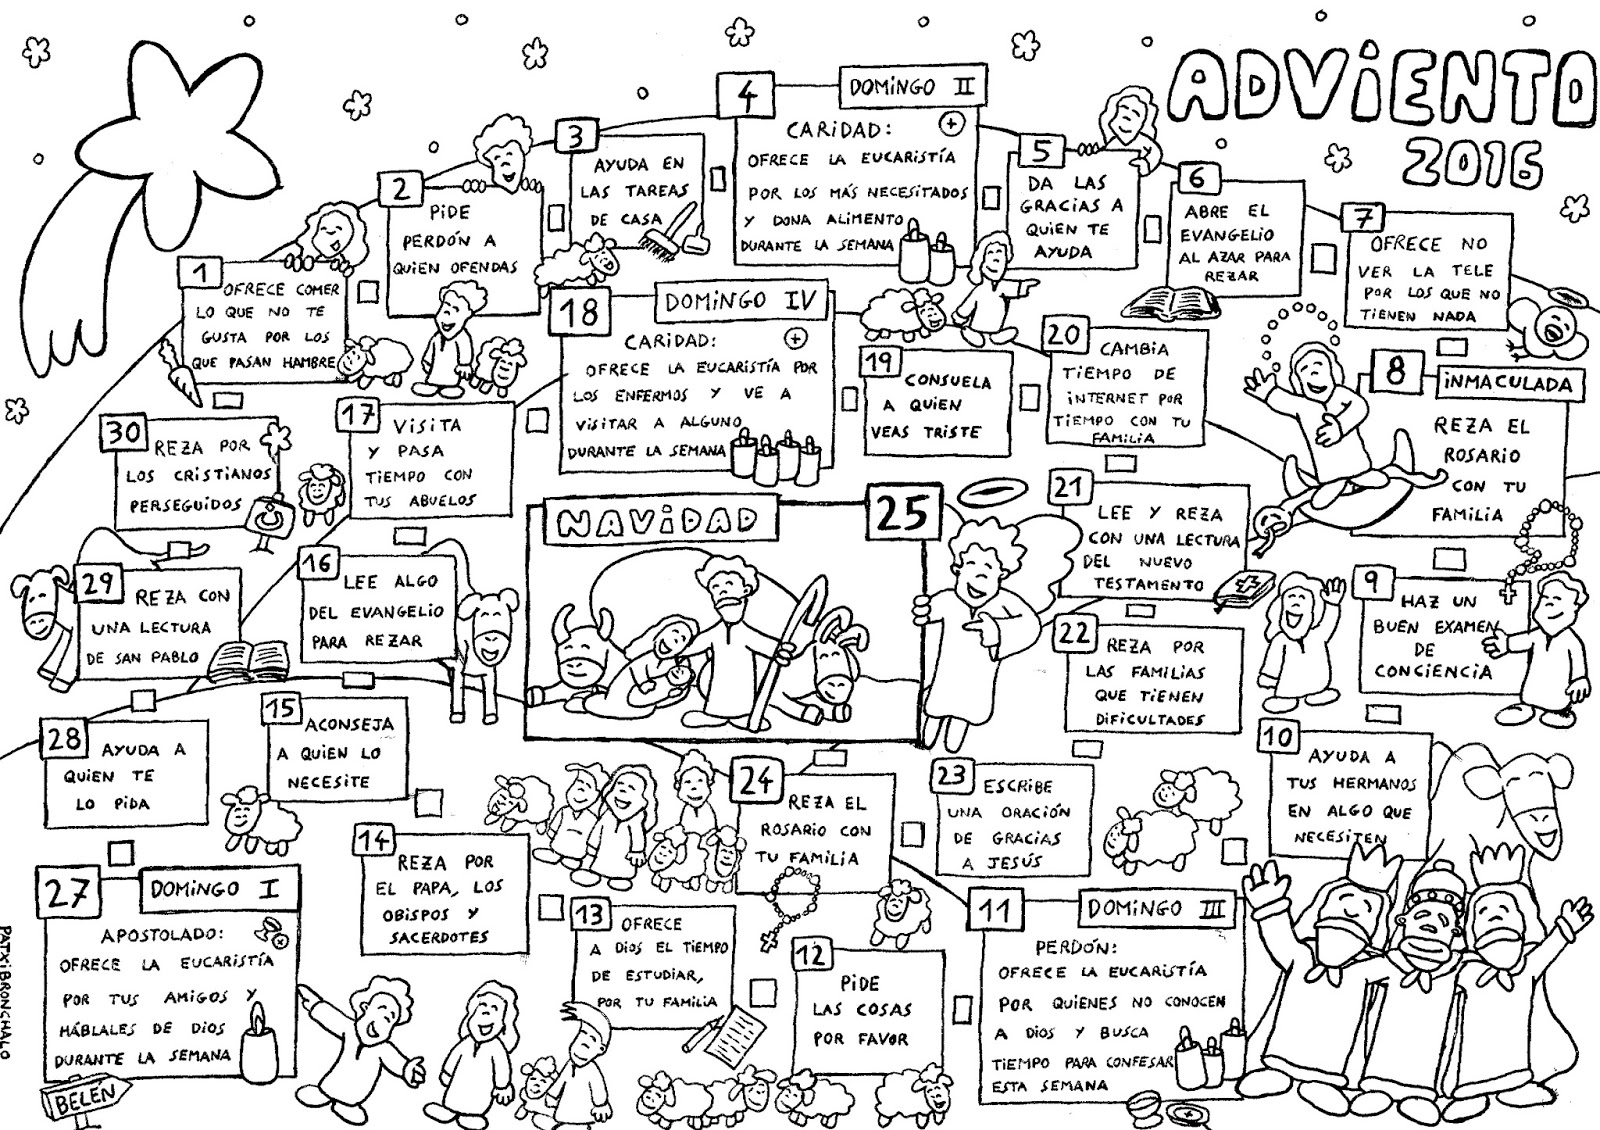 ADVIENTO
2016
27
DOMINGO I
APOSTOLADO:
OFRECE LA EUCARISTÍA
POR TUS AMIGOS Y
HÁBLALES DE DIOS
DURANTE LA SEMANA
BELÉN
PATXI BRONCHALO
28
AYUDA A
QUIEN TE
LO PIDA
29
REZA CON
UNA LECTURA
DE SAN PABLO
30
REZA POR
LOS CRISTIANOS
PERSEGUIDOS
1
OFRECE COMER
LO QUE NO TE
GUSTA POR LOS
QUE PASAN HAMBRE
2
PIDE
PERDÓN A
QUIEN OFENDAS
3
AYUDA EN
LAS TAREAS
DE CASA
4
DOMINGO II
CARIDAD:
OFRECE LA EUCARISTÍA
POR LOS MÁS NECESITADOS
Y DONA ALIMENTO
DURANTE LA SEMANA
5
DA LAS
GRACIAS A
QUIEN TE
AYUDA
6
ABRE EL
EVANGELIO
AL AZAR PARA
REZAR
7
OFRECE NO
VER LA TELE
POR LOS QUE NO
TIENEN NADA
8
INMACULADA
REZA EL
ROSARIO
CON TU
FAMILIA
9
HAZ UN
BUEN EXAMEN
DE
CONCIENCIA
10
AYUDA A
TUS HERMANOS
EN ALGO QUE
NECESITEN
11
DOMINGO III
PERDÓN:
OFRECE LA EUCARISTÍA
POR QUIENES NO CONOCEN
A DIOS Y BUSCA
TIEMPO PARA CONFESAR
ESTA SEMANA
12
PIDE
LAS COSAS
POR FAVOR
13
OFRECE
A DIOS EL TIEMPO
DE ESTUDIAR,
POR TU FAMILIA
14
REZA POR
EL PAPA, LOS
OBISPOS Y
SACERDOTES
15
ACONSEJA
A QUIEN LO
NECESITE
16
LEE ALGO
DEL EVANGELIO
PARA REZAR
17
VISITA
Y PASA
TIEMPO CON
TUS ABUELOS
18
DOMINGO IV
CARIDAD:
OFRECE LA EUCARISTÍA POR
LOS ENFERMOS Y VE A
VISITAR A ALGUNO
DURANTE LA SEMANA
19
CONSUELA
A QUIEN
VEAS TRISTE
20
CAMBIA
TIEMPO DE
INTERNET POR
TIEMPO CON TU
FAMILIA
21
LEE Y REZA
CON UNA LECTURA
DEL NUEVO
TESTAMENTO
22
REZA POR
LAS FAMILIAS
QUE TIENEN
DIFICULTADES
23
ESCRIBE
UNA ORACIÓN
DE GRACIAS
A JESÚS
24
REZA EL
ROSARIO CON
TU FAMILIA
NAVIDAD
25